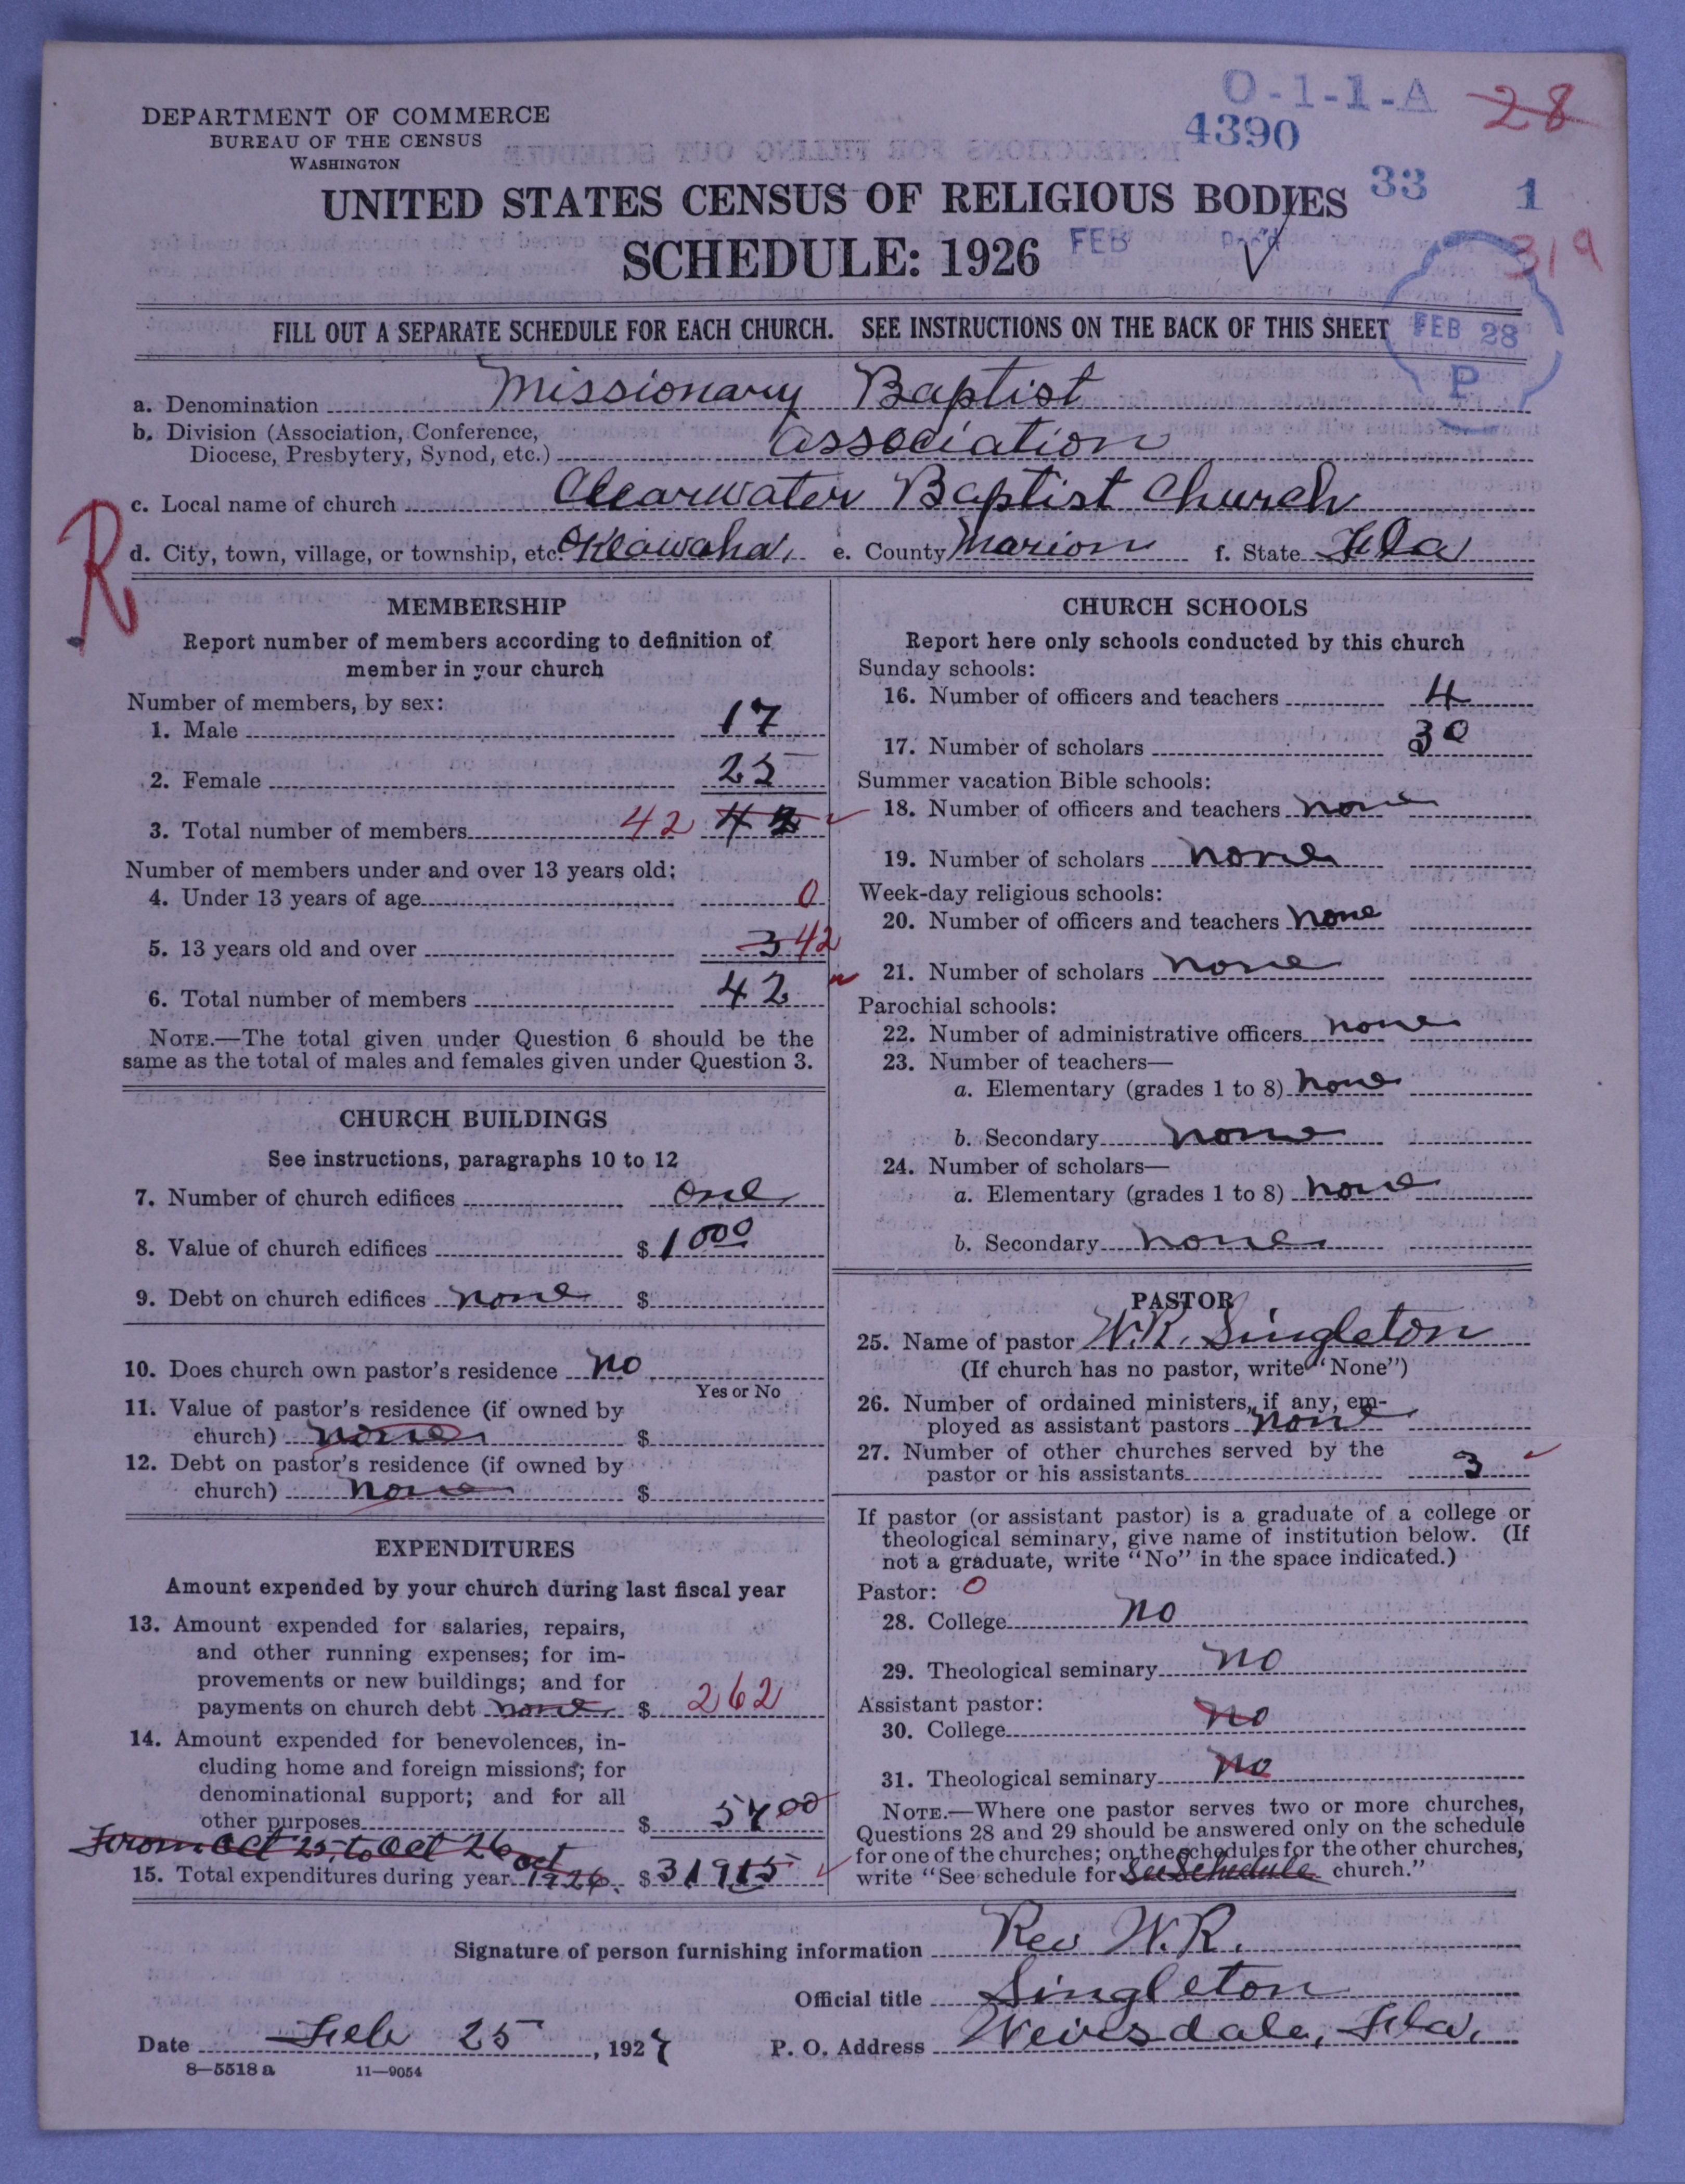 O-1-1-A
28
DEPARTMENT OF COMMERCE
4390
BUREAU OF THE CENSUS
WASHINGTON
33 1
UNITED STATES CENSUS OF RELIGIOUS BODIES
319
SCHEDULE: 1926 FEB Rec'd
FILL OUT A SEPARATE SCHEDULE FOR EACH CHURCH. SEE INSTRUCTIONS ON THE BACK OF THIS SHEET
FEB 28
P
a. Denomination Missionary Baptist
b. Division (Association, Conference,
Diocese, Presbytery, Synod, etc.) Association
c. Local name of church Clearwater Baptist Church
R
d. City, town, village, or township, etc. Oklawaha, e. County Marion f. State Fla
MEMBERSHIP
Report number of members according to definition of
member in your church
Number of members, by sex:
1. Male 17
2. Female 25
3. Total number of members 42 42
Number of members under and over 13 years old:
4. Under 13 years of age 0
5. 13 years old and over 3 42
6. Total number of members 42
NOTE.—The total given under Question 6 should be the
same as the total of males and females given under Question 3.
CHURCH BUILDINGS
See instructions, paragraphs 10 to 12
7. Number of church edifices one
8. Value of church edifices $ 1000
9. Debt on church edifices none $
10. Does church own pastor's residence no
Yes or No
11. Value of pastor's residence (if owned by
church) none $
12. Debt on pastor's residence (if owned by
church) none $
EXPENDITURES
Amount expended by your church during last fiscal year
13. Amount expended for salaries, repairs,
and other running expenses; for im-
provements or new buildings; and for
payments on church debt none $ 262
14. Amount expended for benevolences, in-
cluding home and foreign missions; for
denominational support; and for all
other purposes $ 57 00
From Oct 25, to Oct 26
oct
15. Total expenditures during year 1926. $ 319 15
CHURCH SCHOOLS
Report here only schools conducted by this church
Sunday schools:
16. Number of officers and teachers 4
17. Number of scholars 30
Summer vacation Bible schools:
18. Number of officers and teachers none
19. Number of scholars none
Week-day religious schools:
20. Number of officers and teachers none
21. Number of scholars none
Parochial schools:
22. Number of administrative officers none
23. Number of teachers—
a. Elementary (grades 1 to 8) none
b. Secondary none
24. Number of scholars—
a. Elementary (grades 1 to 8) none
b. Secondary none
PASTOR
25. Name of pastor W.R. Singleton
(If church has no pastor, write "None")
26. Number of ordained ministers, if any, em-
ployed as assistant pastors none
27. Number of other churches served by the
pastor or his assistants 3
If pastor (or assistant pastor) is a graduate of a college or
theological seminary, give name of institution below. (If
not a graduate, write "No" in the space indicated.)
Pastor: 0
28. College no
29. Theological seminary no
Assistant pastor:
30. College no
31. Theological seminary no
NOTE.—Where one pastor serves two or more churches,
Questions 28 and 29 should be answered only on the schedule
for one of the churches; on the schedules for the other churches,
write "See schedule for See Schedule church."
Signature of person furnishing information Rev W.R.
Official title Singleton
Date Feb 25, 1927 P. O. Address Weirsdale, Fla.
8—5518 a 11—9054